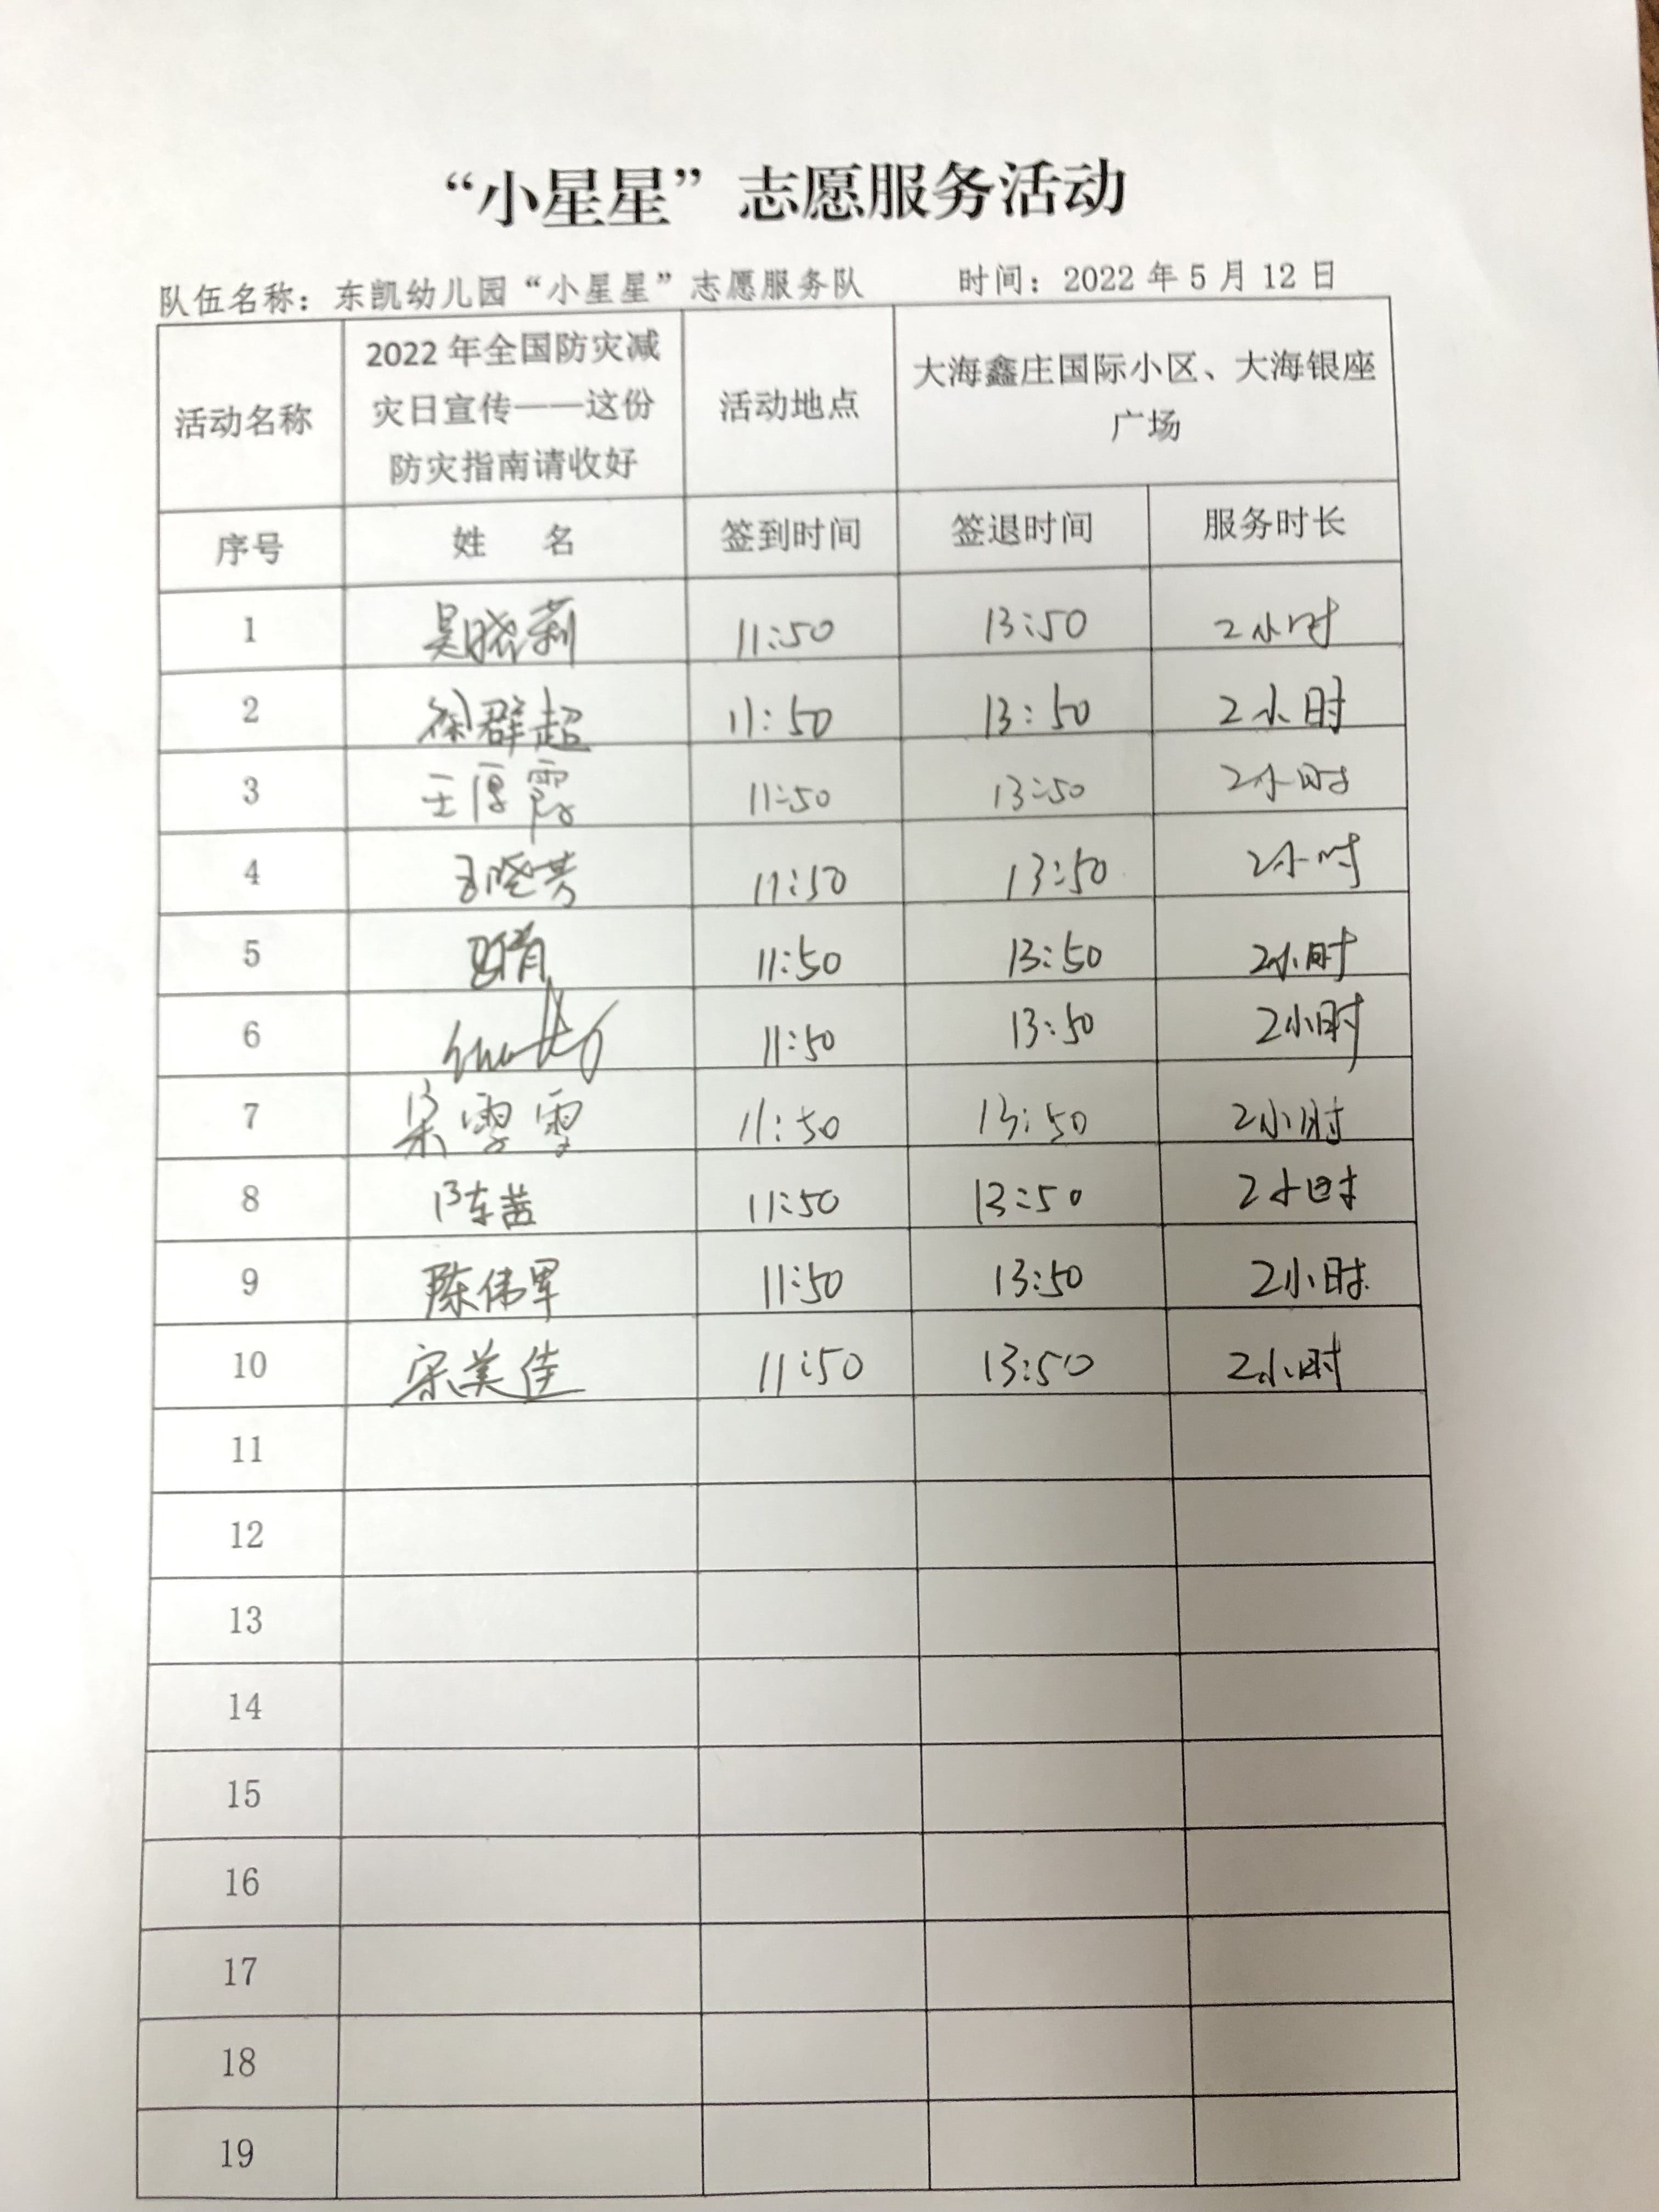 “小星星”志愿服务活动
队伍名称：东凯幼儿园“小星星”志愿服务队 时间：2022 年 5 月 12 日
活动名称 2022 年全国防灾减灾日宣传——这份防灾指南请收好 活动地点 大海鑫庄国际小区、大海银座广场
序号 姓 名 签到时间 签退时间 服务时长
1 吴晓莉 11:50 13:50 2小时
2 徐群超 11:50 13:50 2小时
3 王厚霞 11:50 13:50 2小时
4 晓芳 11:50 13:50 2小时
5 11:50 13:50 2小时
6 11:50 13:50 2小时
7 梁雪雪 11:50 13:50 2小时
8 陈茜 11:50 13:50 2小时
9 陈伟军 11:50 13:50 2小时
10 宋美佳 11:50 13:50 2小时
11
12
13
14
15
16
17
18
19